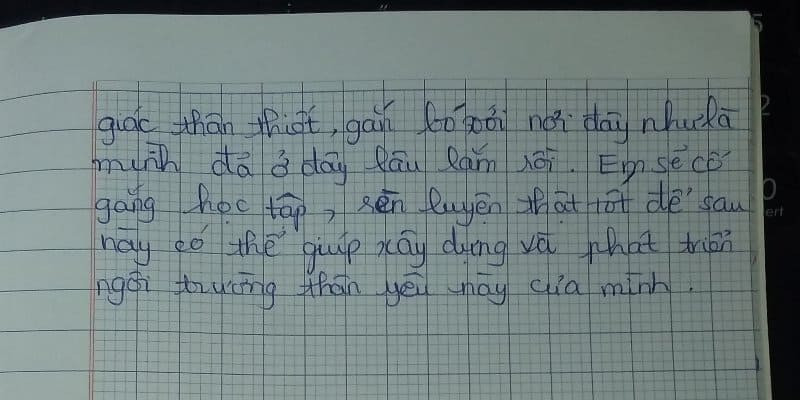 giác thân thiết, gắn bó với nơi đây như là
mình đã ở đây lâu lắm rồi. Em sẽ cố
gắng học tập, rèn luyện thật tốt để sau
này có thể giúp xây dựng và phát triển
ngôi trường thân yêu này của mình.